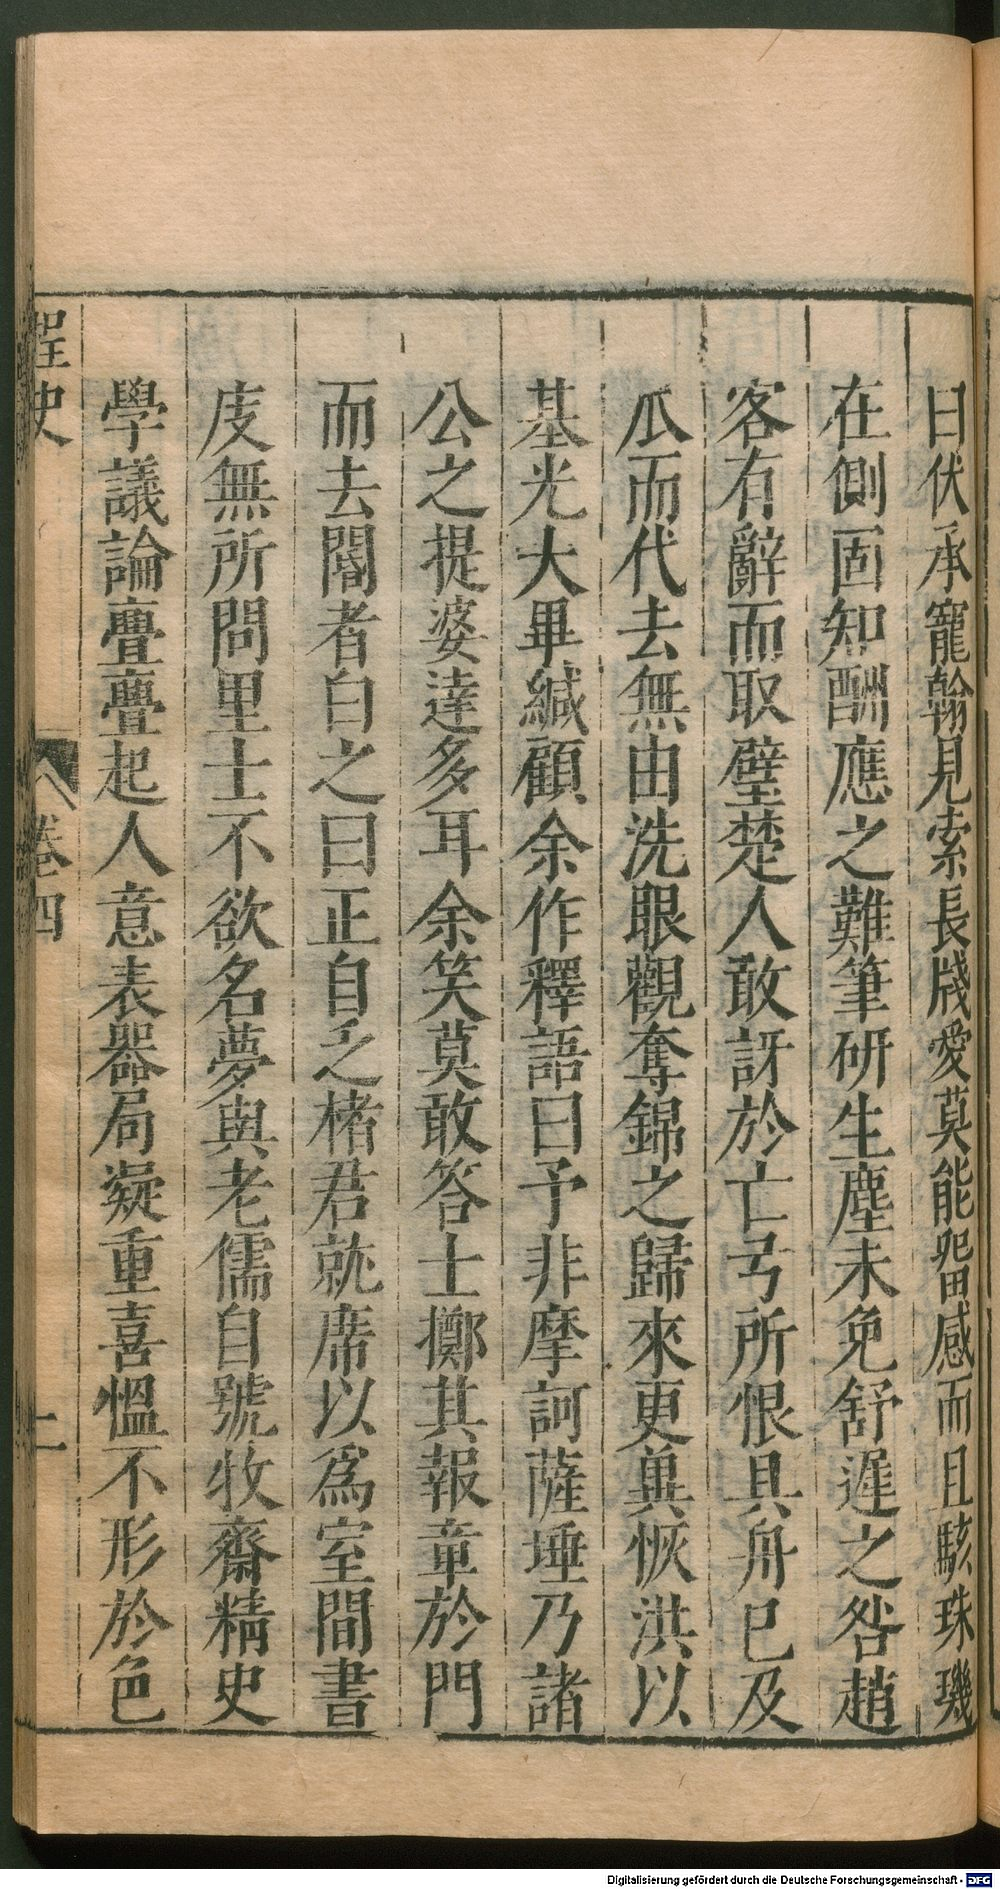 曰伏承寵翰見索長牋愛莫能畱感而且駭珠璣
在側固知酬應之難筆研生塵未免舒遲之咎趙
客有辭而取璧楚人敢訝於亡弓所恨具舟已及
瓜而代去無由洗眼觀奪錦之歸來更兾恢洪以
基光大畢緘顧余作釋語曰予非摩訶薩埵乃諸
公之提婆達多耳余笑莫敢答士擲其報章於門
而去閽者白之曰正自乏楮君就席以爲室間書
庋無所問里士不欲名夢與老儒自號牧齋精史
學議論亹亹起人意表器局凝重喜慍不形於色
桯史
卷四
二
Digitalisierung gefördert durch die Deutsche Forschungsgemeinschaft - DFG